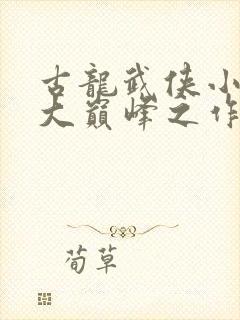 古龍武俠小
大巔峰之作
荀草